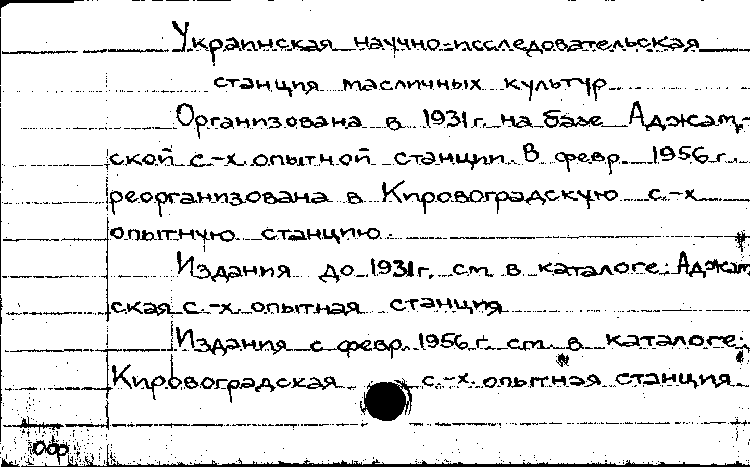 Украинская научно-исследовательская
станция масличных культур
Организована в 1931г. на базе Аджам-
ской с.-х. опытной станции. В февр. 1956 г.
реорганизована в Кировоградскую с.-х
опытную станцию.
Издания до 1931г. см. в каталоге: Аджам
ская с.-х опытная станция
Издания с февр. 1956 г. см. в каталоге:
Кировоградская с.-х. опытная станция